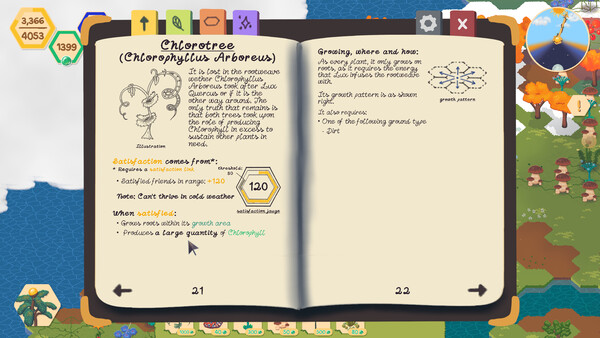 3,366
4053
1399
Chlorotree
(Chlorophyllus Arboreus)
It is lost in the rootweave
wether Chlorophyllus
Arboreus took after Lux
Quercus or if it is the
other way around. The
only truth that remains is
that both trees took upon
the role of producing
Chlorophyll in excess to
sustain other plants in
need.
Illustration
Satisfaction comes from*:
* Requires a satisfaction link
• Satisfied friends in range: +120
Note: Can't thrive in cold weather
threshold:
120
satisfaction gauge
When satisfied:
• Grows roots within its growth area
• Produces a large quantity of Chlorophyll
21
Growing, where and how:
As every plant, it only grows on
roots, as it requires the energy
that Lux infuses the rootweave
with.
Its growth pattern is as shown
right.
growth pattern
It also requires:
• One of the following ground type
- Dirt
22